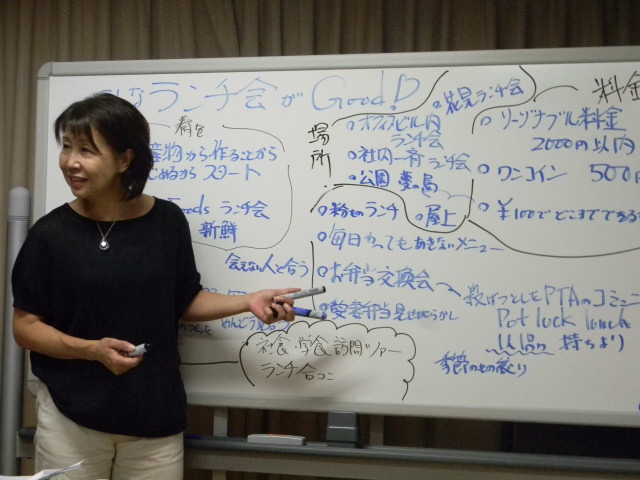 なランチ会が Good!
産物から作ることから
じめるから スタート
Foods ランチ会
新鮮
会えない人と合う
場所
花見ランチ会
オフィスビル内
ランチ会
社内一斉ランチ会
公園 夢の島
粉ものランチ
屋上
毎日やってもあきないメニュー
お弁当交換会
愛妻弁当見せびらかし
社食・学食訪問ツアー
ランチ合コン
料金
リーゾナブル料金
2000円以内
ワンコイン 500円
¥100でどこまでできる
殺ばつとしたPTAのコミュ
Pot luck lunch
一人一品 持ちより
季節のもの